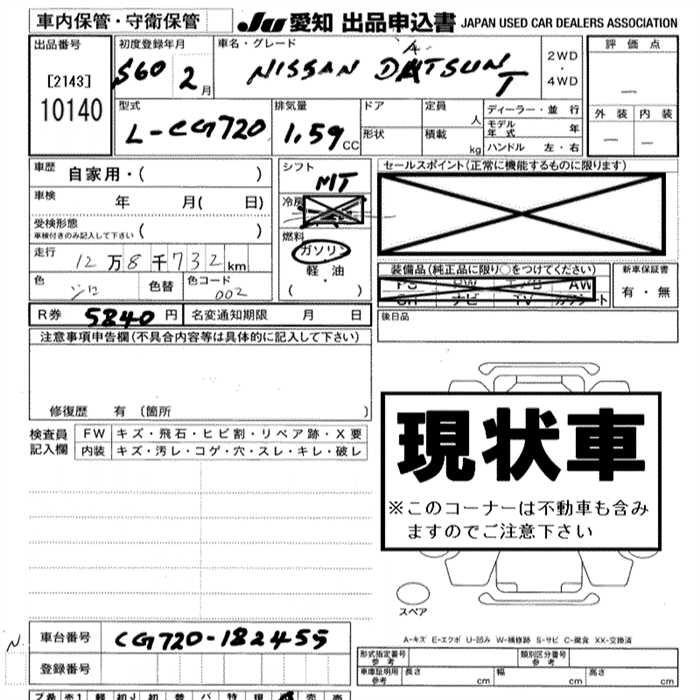 車内保管・守衛保管 JU 愛知 出品申込書 JAPAN USED CAR DEALERS ASSOCIATION
出品番号 初度登録年月 車名・グレード 評価点
[2143] S60 2月 NISSAN DATSUN T 2WD・4WD
10140 型式 排気量 ドア 定員 人 ディーラー・並行 外装 内装
L-CG720 1.59CC 形状 積載 kg モデル年式 年
ハンドル 左・右
車歴 自家用・( ) シフト MT セールスポイント(正常に機能するものに限ります)
車検 年 月( 日) 冷房
受検形態 車検付きのみ記入して下さい ( ) 燃料
走行 12万8千732km ガソリン 装備品(純正品に限り○をつけてください) 新車保証書
色 シロ 色替 色コード 002 軽・油 PS PW エアB AW 有・無
( ) SR ナビ TV カワシート
R券 5840円 名変通知期限 月 日 後日品
注意事項申告欄(不具合内容等は具体的に記入して下さい)
修復歴 有 (箇所 )
検査員 FW キズ・飛石・ヒビ割・リペア跡・X要
記入欄 内装 キズ・汚レ・コゲ・穴・スレ・キレ・破レ
現状車
※このコーナーは不動車も含み
ますのでご注意下さい
スペア
A-キズ E-エクボ U-凹み W-補修跡 S-サビ C-腐食 XX-交換済
N
車台番号 CG720-182455 形式指定番号 参考 類別区分番号 参考
登録番号 車庫証明用 参考 長さ cm 幅 cm 高さ cm